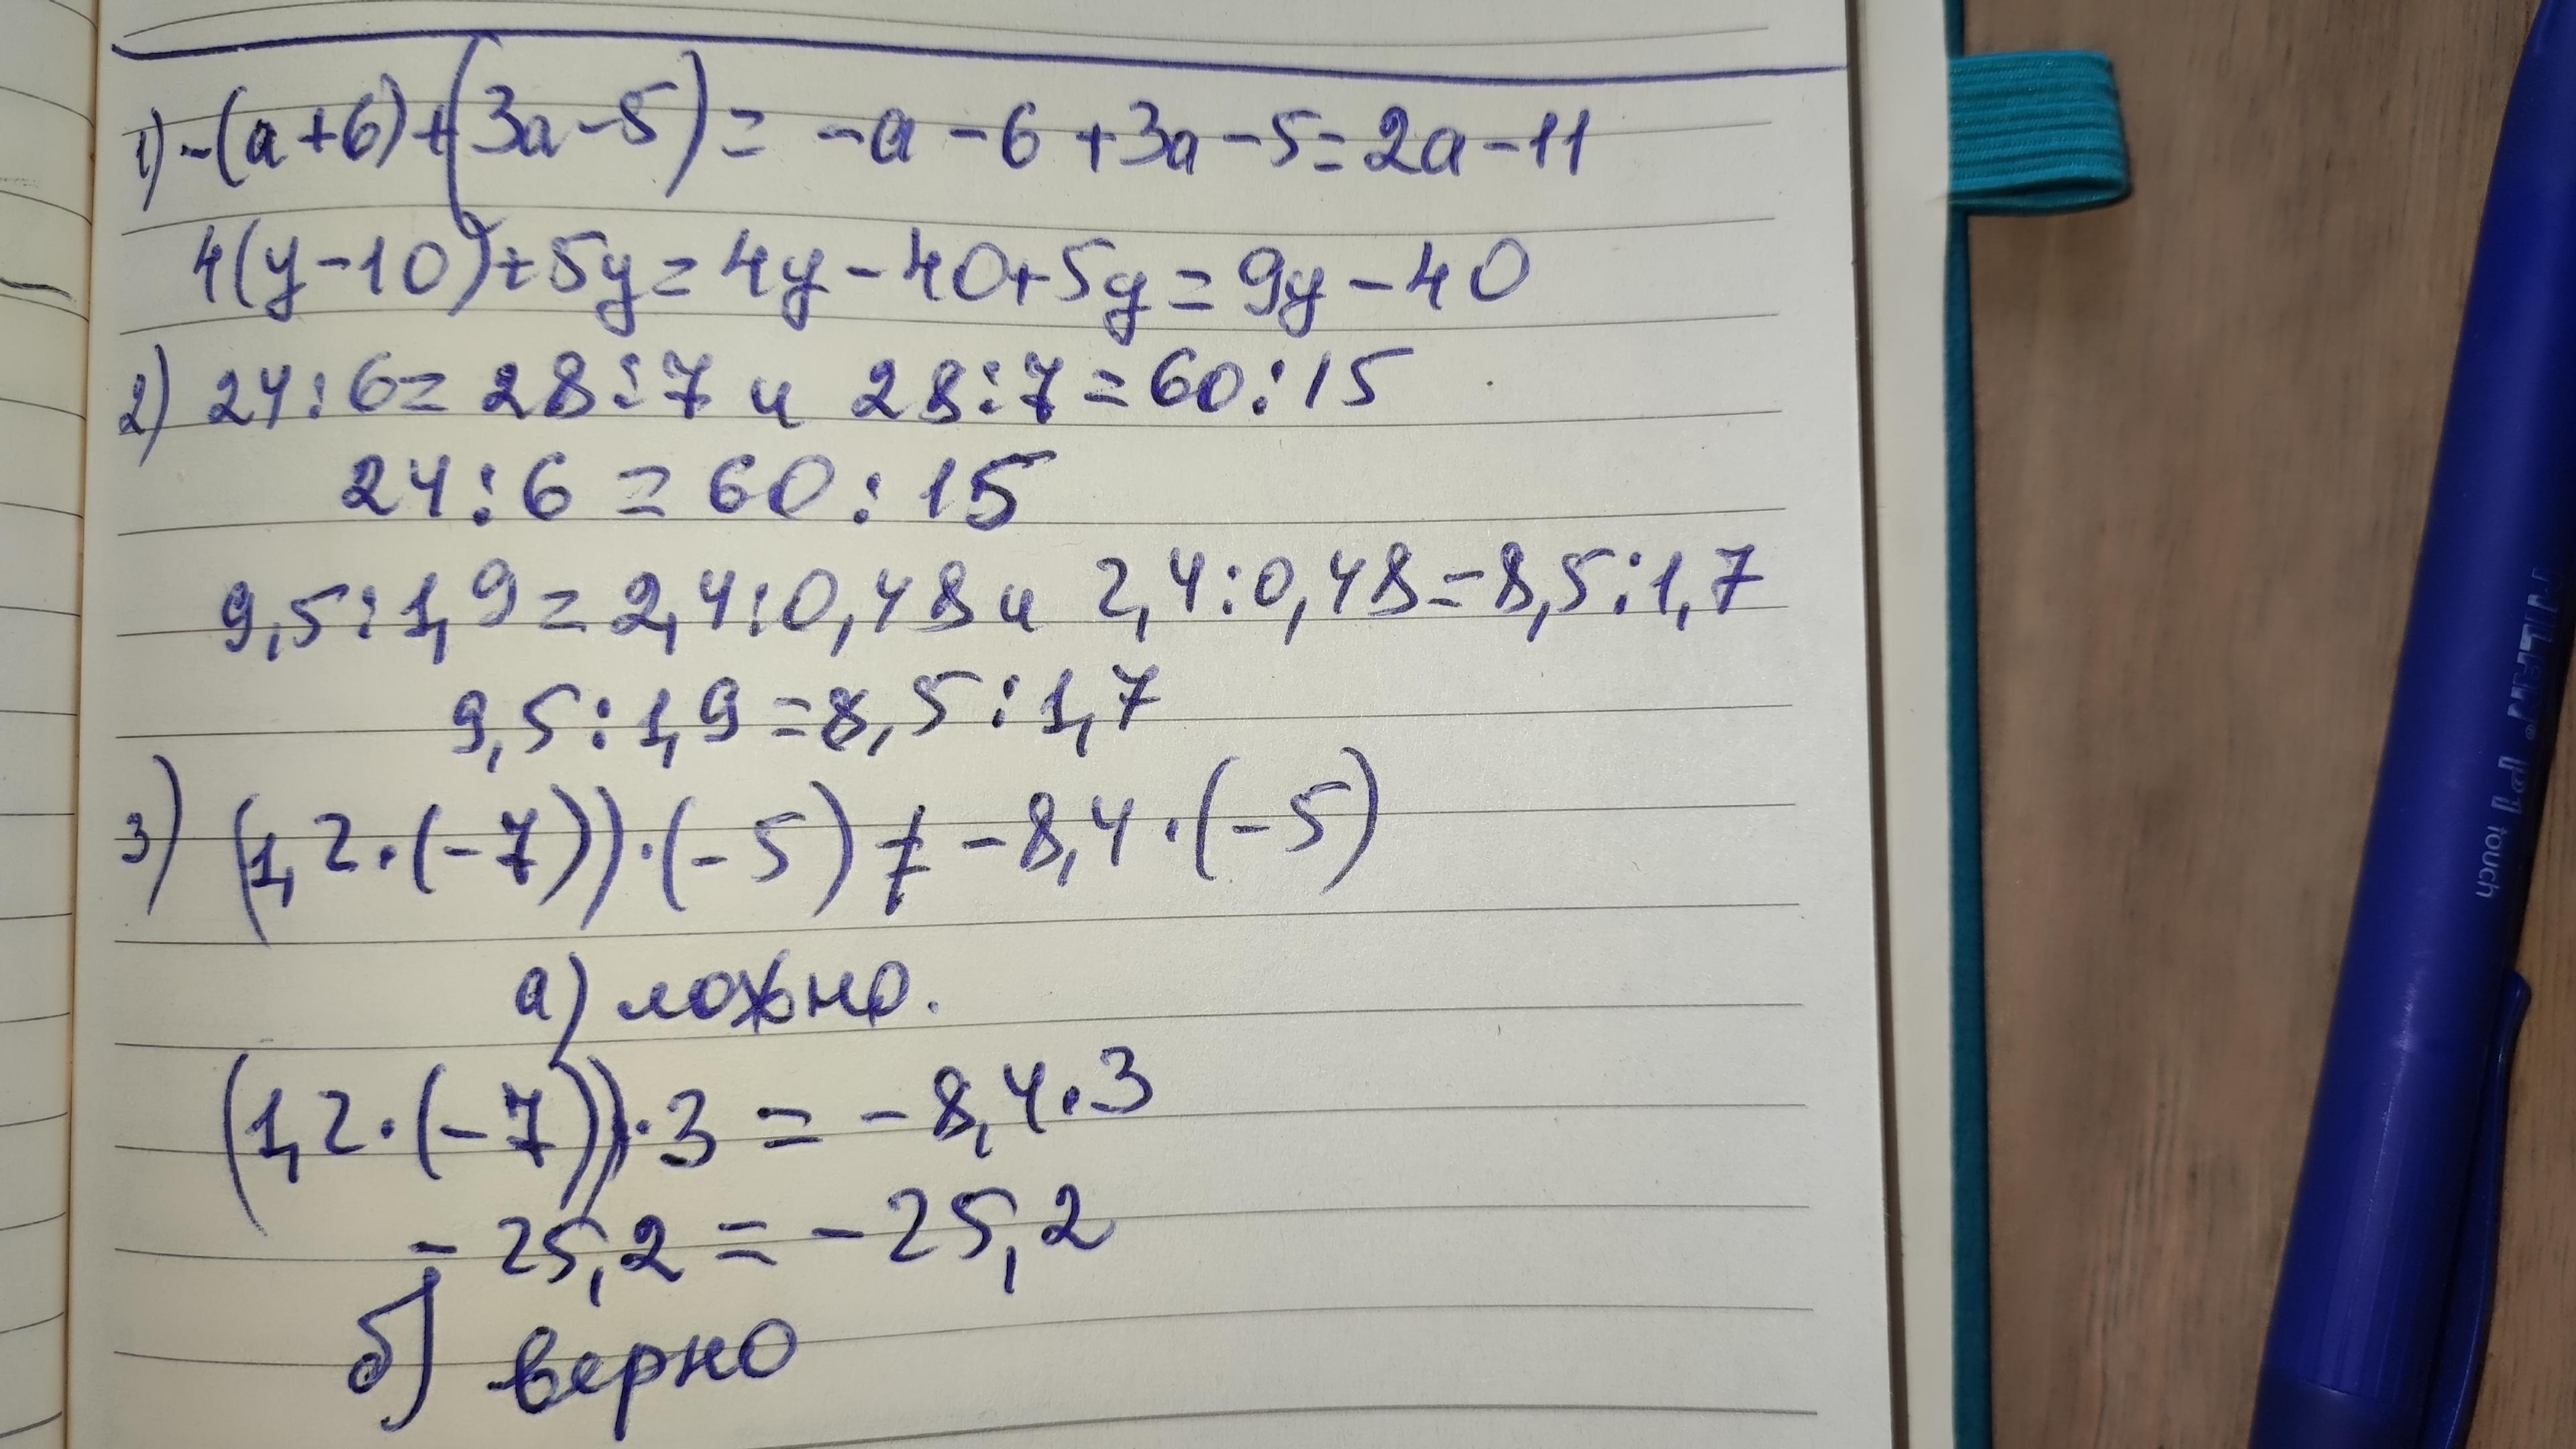 1) -(a+6)+(3a-5)= -a-6+3a-5=2a-11
4(y-10)+5y=4y-40+5y=9y-40
2) 24:6=28:7 и 28:7=60:15
24:6=60:15
9,5:1,9=2,4:0,48 и 2,4:0,48=8,5:1,7
9,5:1,9=8,5:1,7
3) (1,2·(-7))·(-5) ≠ -8,4·(-5)
а) ложно.
(1,2·(-7))·3 = -8,4·3
-25,2=-25,2
б) верно
touch